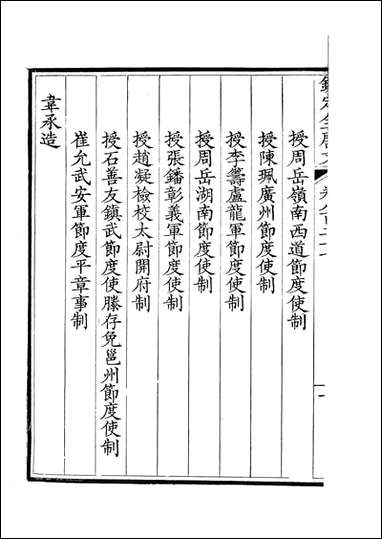 授周岳嶺南西道節度使制
授陳珮廣州節度使制
授李鐬盧龍軍節度使制
授周岳湖南節度使制
授張鐇彰義軍節度使制
授趙凝檢校太尉開府制
授石善友鎮武節度使滕存免邕州節度使制
崔允武安軍節度平章事制
韋承造